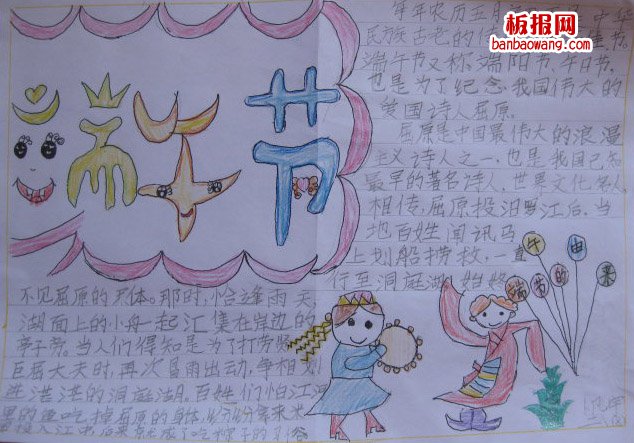 端午节
年年农历五月
板报网
banbaowang.com
民族古老的
端午节又称端阳节、午日节,
也是为了纪念我国伟大的
爱国诗人屈原。
屈原是中国最伟大的浪漫
主义诗人之一,也是我国已知
最早的著名诗人,世界文化名人。
相传,屈原投汨罗江后,当
地百姓闻讯马
上划船捞救,一直
行至洞庭湖,始终
不见屈原的尸体。那时,恰逢雨天,
湖面上的小舟一起汇集在岸边的
亭子旁。当人们得知是为了打劳贤
臣屈大夫时,再次冒雨出动,争相划
进茫茫的洞庭湖。百姓们怕江河
里的鱼吃掉屈原的身体,纷纷拿来米
投入江中,后来就成了吃粽子的习俗
端午节的由来